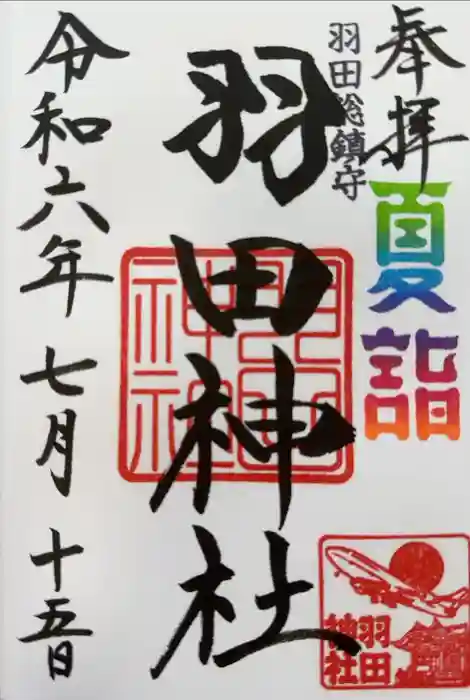 奉拝
夏詣
羽田総鎮守
羽田神社
令和六年七月十五日
羽田
神社
羽田
神社